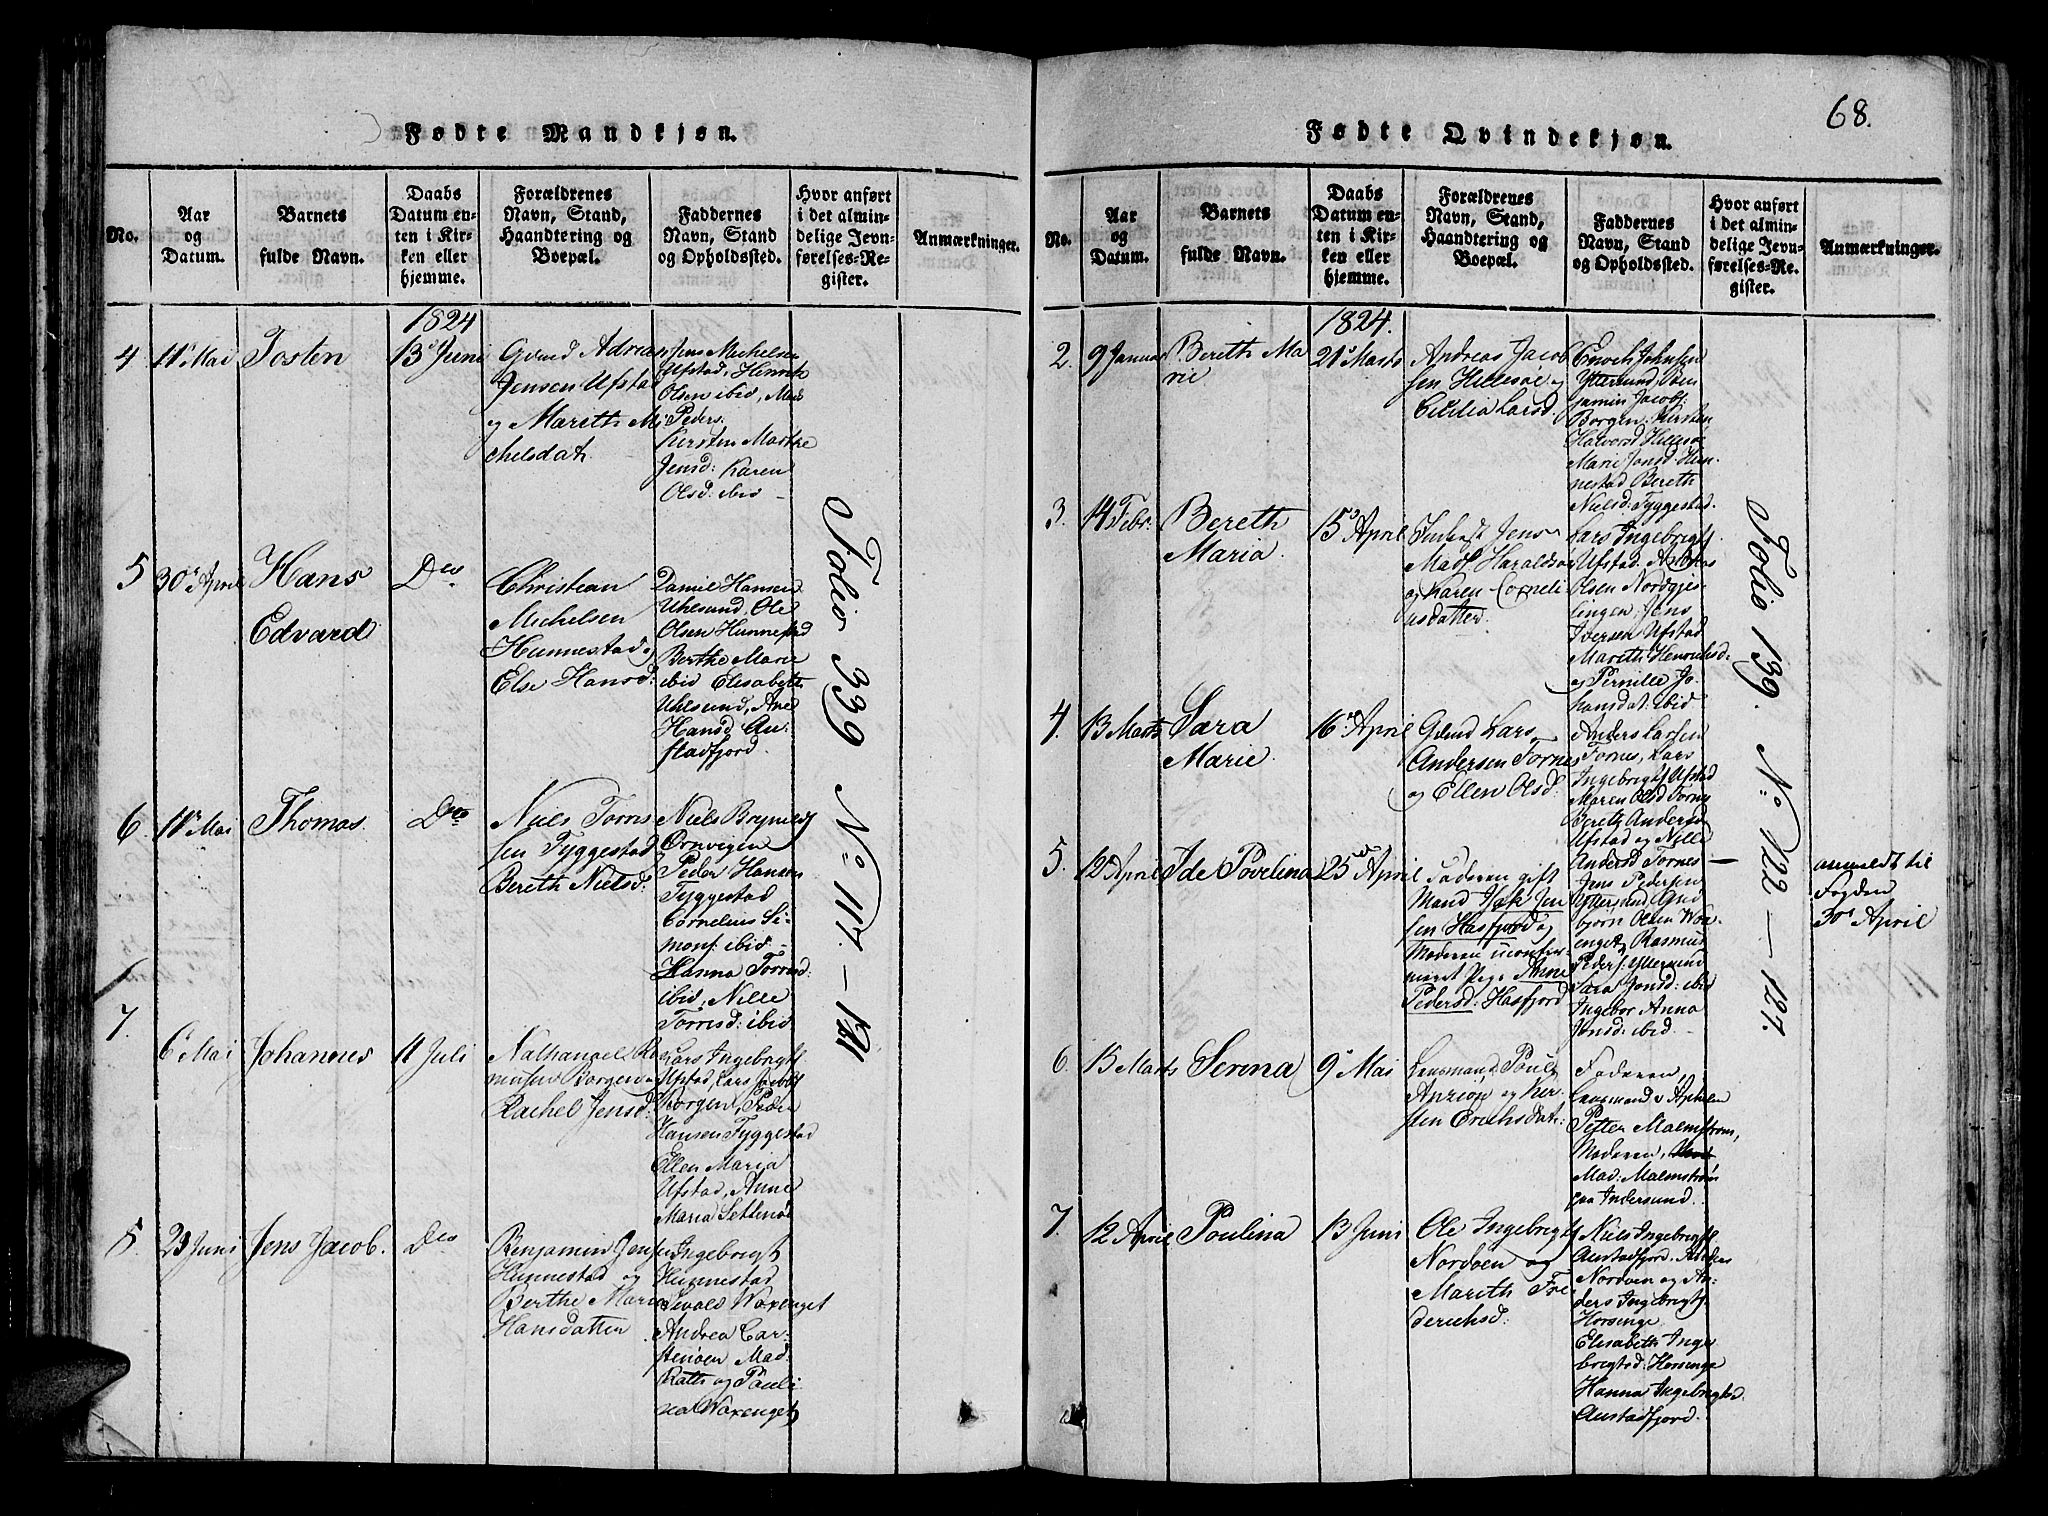 68.
Fødte Mandkjøn.
No.
Aar
og
Datum.
Barnets
fulde Navn.
Daabs
Datum en-
ten i Kir-
ken eller
hjemme.
Forældrenes
Navn, Stand,
Haandtering og
Boepæl.
Faddernes
Navn, Stand
og Opholdssted.
Hvor anført
i det almin-
delige Jevn-
førelses-Re-
gister.
Anmærkninger.
1824
4
11 Mai
Josten
13 Juni
Gmd Adrian
Jensen Ufstad
og Mareth Mi
chelsdat
Jens Michelsen
Ufstad, Henrich
Olsen ibid, Mads
Peders.
Kirsten Marthe
Jensd: Karen
Olsd. ibid
5
30 April
Hans
Edvard
Do
Christian
Michelsen
Hunnestad og
Else Hansd:
Daniel Hansen
Uhlsund, Ole
Olsen Hunnestad
Berthe Marie
ibid Elisabeth
Uhlsund, Ane
Hansd Au-
stadfjord.
6.
11 Mai
Thomas.
Do
Niels Torris
sen Tyggestad
Bereth Nielsd:
Niels Brynildsf
Ornvigen
Peder Hansen
Tyggestad
Cornelius Si-
mons: ibid
Hanna Torrisd:
ibid, Nille
Torrisd: ibid
7.
6 Mai
Johannes
11 Juli
Nathanael Ra
musen Borgen og
Rachel Jensd:
Lars Ingebrigtf
Ufstad, Lars Jacobf
Borgen, Peder
Hansen Tyggestad
Ellen Maria
Ufstad, Anne
Maria Settenøe
8.
23 Juni
Jens Jacob.
Do
Benjamin Jensen
Hunnestad og
Berthe Marie
Hansdatter
Ingebrigt
Hunnestad
Sivald Woxenget
Andrea Car-
stenøen Mad:
Rath og Pauli
na Woxenget
Folio 339 No 117. – 121
Fødte Qvindekjøn.
No.
Aar
og
Datum.
Barnets
fulde Navn.
Daabs
Datum en-
ten i Kir-
ken eller
hjemme.
Forældrenes
Navn, Stand,
Haandtering og
Boepæl.
Faddernes
Navn, Stand
og Opholdssted.
Hvor anført
i det almin-
delige Jevn-
førelses-Re-
gister.
Anmærkninger.
1824.
2.
9 Januar
Bereth Ma
rie
21 Marts
Andreas Jacob
sen Hillesøe og
Cicilia Larsd.
Enoch Johnsen
Yttersund, Ben
jamin Jacobs:
Borgen: Kirsten
Halvorsd Hillesøe
Marie Jonsd: Hun-
nestad Bereth
Nielsd: Tyggestad.
3.
14 Febr.
Bereth
Maria.
15 April
Inderst Jens
Mads Haraldsøe
og Karen Corneli
usdatter.
Lars Ingebrigtf
Ufstad. Andreas
Olsen Nordgjes-
lingen. Jens
Iversen Ufstad
Mareth Henrichsd:
og Pernille Jo-
hansdat: ibid
4.
13 Marts
Sara
Marie.
16 April
Gmd Lars
Andersen Tornes
og Ellen Olsd.
Anders Larsen
Tornes, Lars
Ingebrigtf Ufstad
Maren Olsd Tornes
Bereth Andersd
Ufstad og Nille
Andersd Tornes
5.
12 April
Ide Povelina
25 April
Faderen gift
Mand Isak Jen
sen Hasfjord og
Moderen uconfir
meret Pige Anne
Pedersd: Hasfjord
Jens Pedersen
Yttersund, And
bjørn Olsen Wox-
enget, Rasmus
Peders: Yttersund
Sara Jonsd: ibid
Ingebor Anna
Jonsd: ibid
anmeldt til
Fogden
30 April
6.
15 Marts
Serina
9 Mai
Lensmand Poul
Anriøe og Kir-
sten Erichsdat:
Faderen,
Lensmand v Aphelen
Petter Malmstrøm,
Moderen,
Mad: Malmstrøm
paa Indersund.
7.
12 April
Poulina
13 Juni
Ole Ingebrigtf
Nordøen og
Mareth Fri
derichsd:
Niels Ingebrigtf.
Austadfjord. Peder
Nordøen og An-
ders Ingebrigtf.
Horsenge.
Elisabeth Inge
brigtsd: Horsenge
Hanna Ingebrigtsd.
Austadfjord.
Folio 139. No 122 – 127.